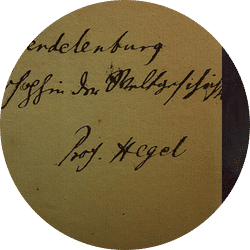 endelenburg
der Weltgeschicht
Prof. Hegel